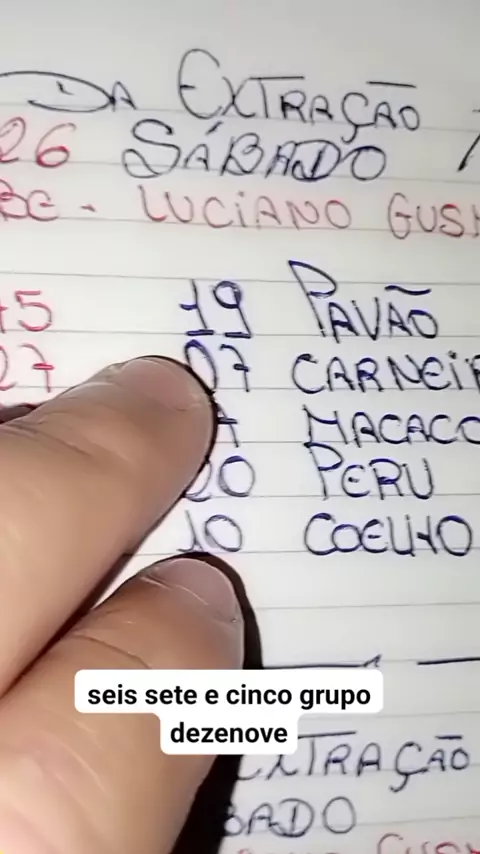 DA EXTRAÇÃO
26 SÁBADO
LUCIANO
19 PAVÃO
27 07 CARNEI
MACACO
20 PERU
10 COELHO
seis sete e cinco grupo
dezenove
EXTRAÇÃO